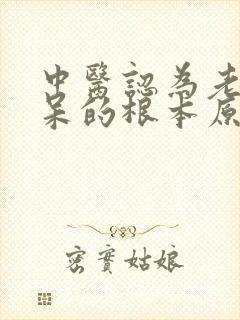 中醫認為老
呆的根本原
密實姑娘